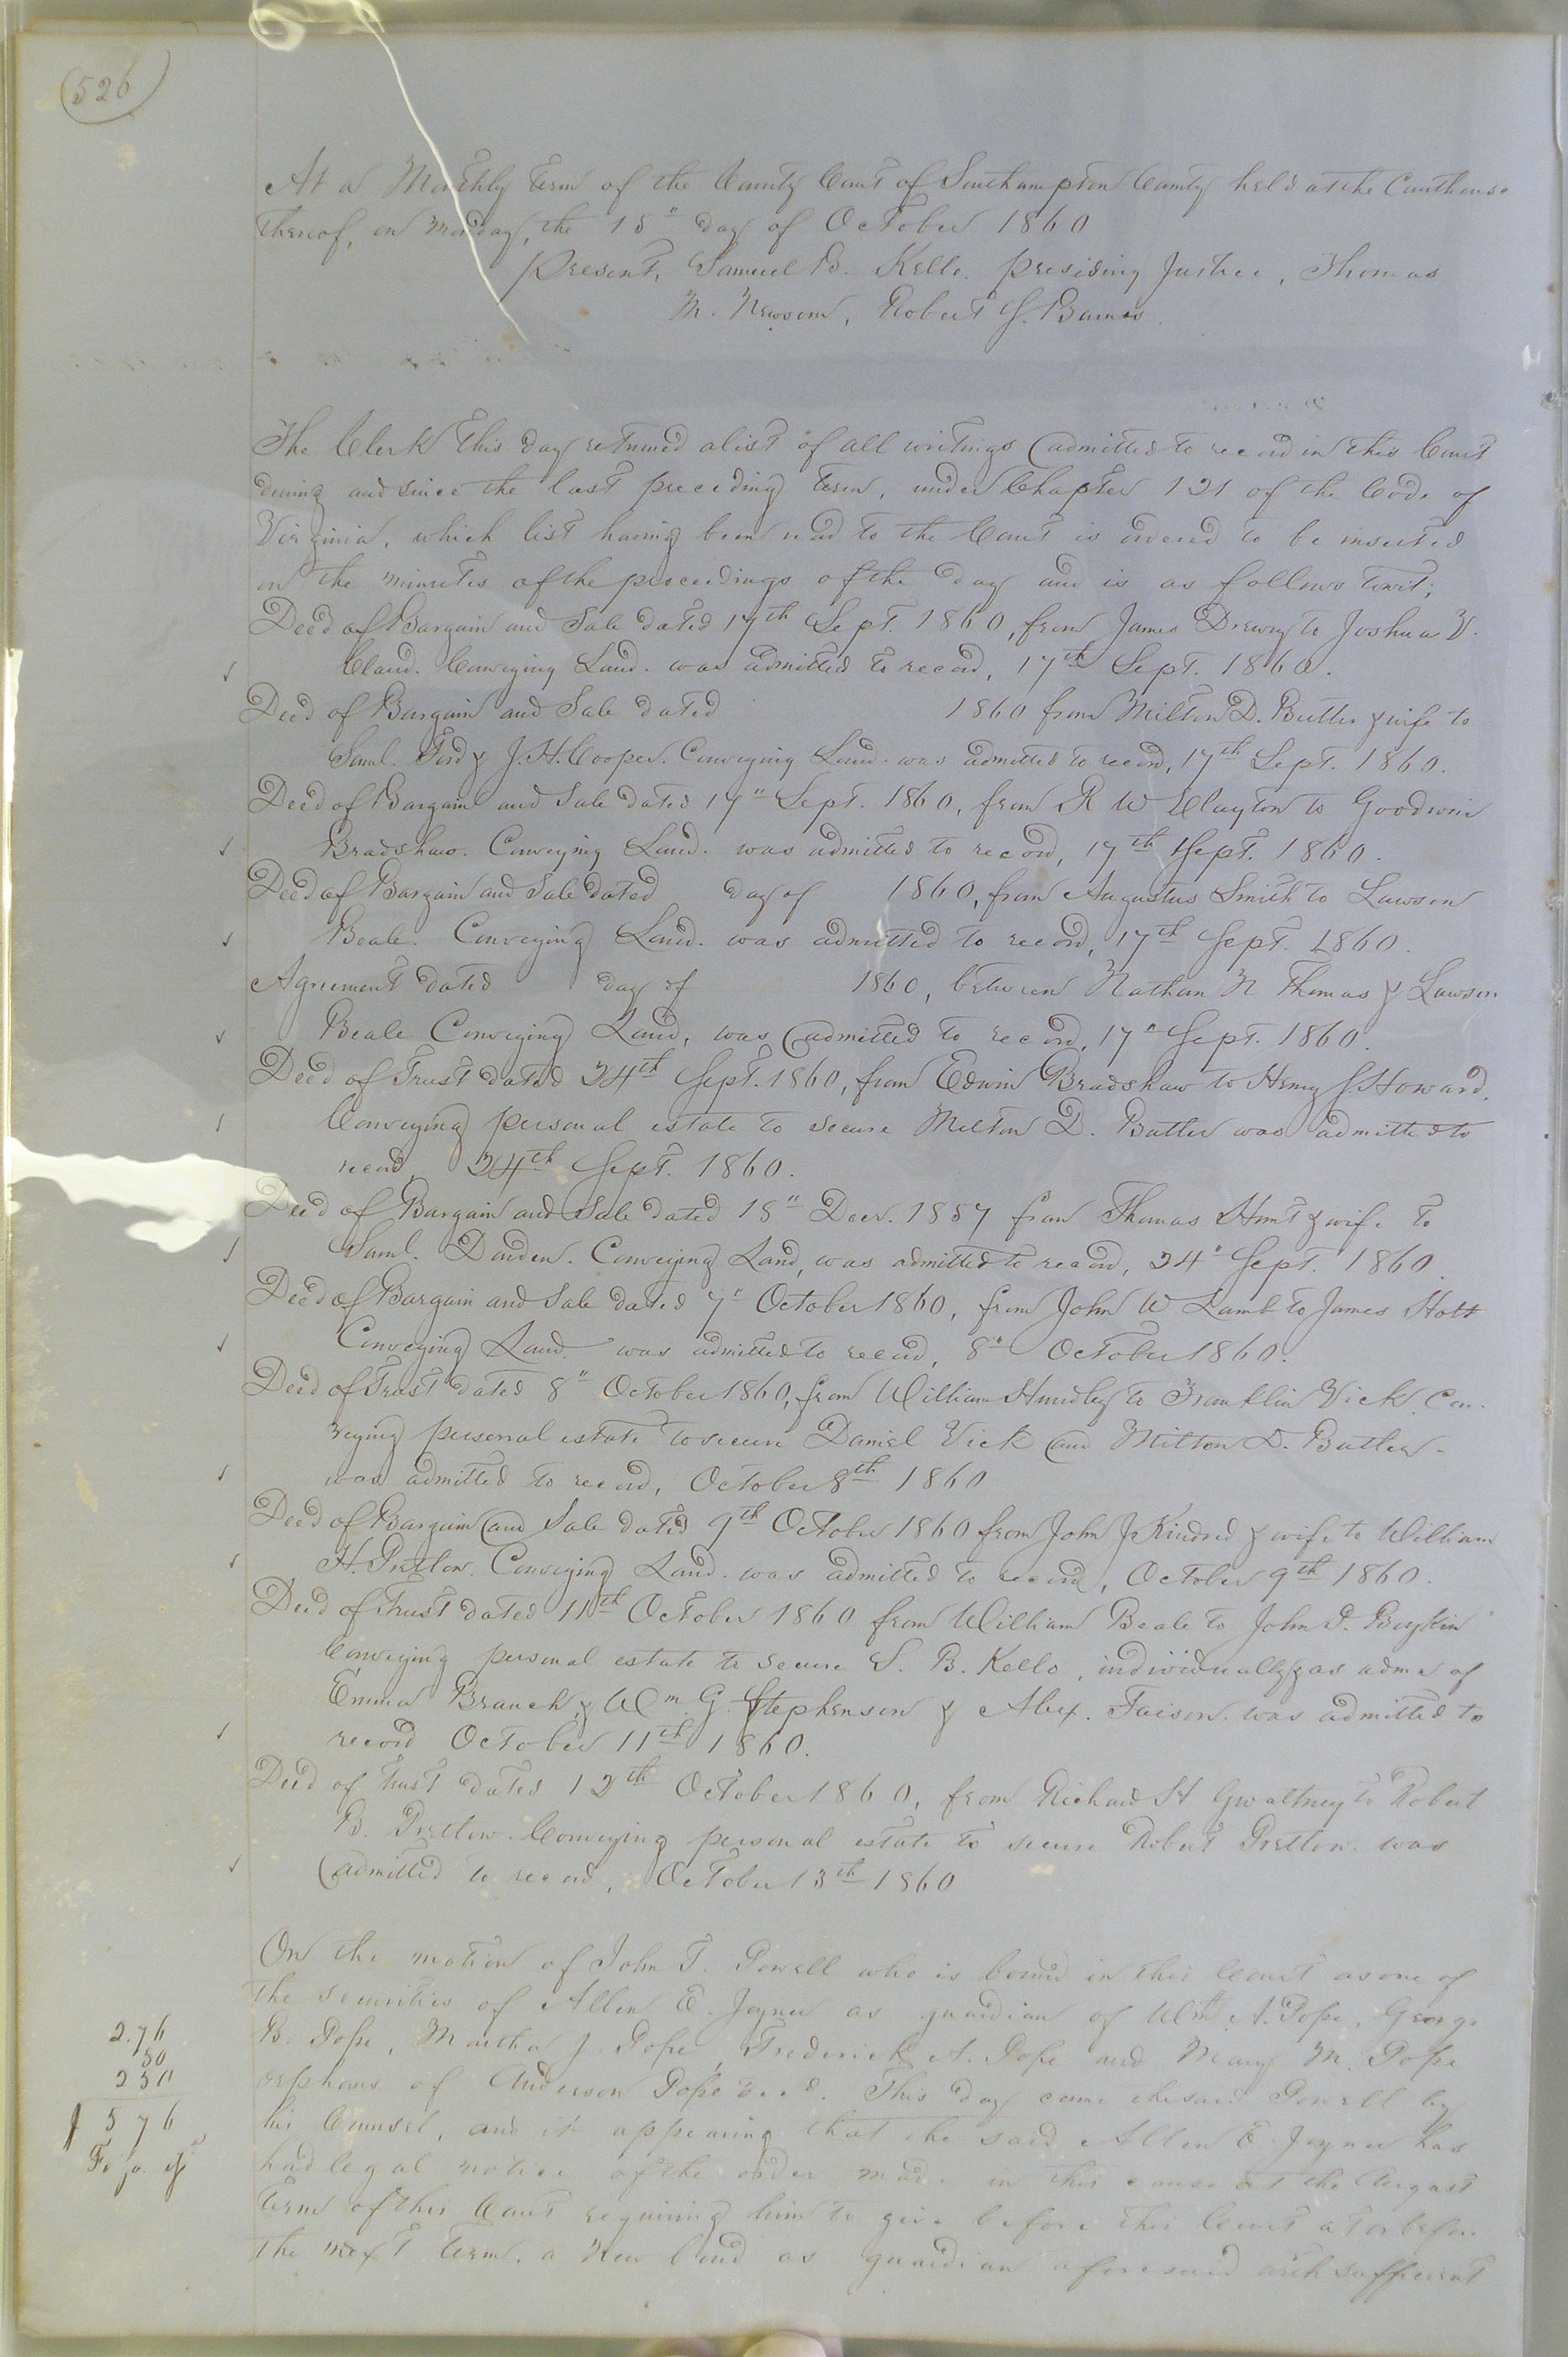 526
At a Monthly term of the County Court of Southampton County held at the Courthouse
thereof, on Monday, the 15" day of October 1860
Present, Samuel B. Kello. presiding Justice, Thomas
M. Newsom, Robert S. Barnes.
The Clerk this day returned a list of all writings admitted to record in this Court
during and since the last preceding term, under Chapter 121 of the Code of
Virginia, which list having been read to the Court is ordered to be inserted
in the minutes of the proceedings of the day and is as follows towit;
Deed of Bargain and Sale dated 17th Sept. 1860, from James Drewry to Joshua
Claud. Conveying Land. was admitted to record, 17th Sept. 1860.
Deed of Bargain and Sale dated 1860 from Milton D. Butler & wife to
Saml. Ford & J. H. Cooper. Conveying Land. was admitted to record, 17th Sept. 1860.
Deed of Bargain and Sale dated 17" Sept. 1860, from R W Clayton to Goodwin
Bradshaw. Conveying Land. was admitted to record, 17th Sept. 1860.
Deed of Bargain and Sale dated day of 1860, from Augustus Smith to Lawson
Beale. Conveying Land. was admitted to record, 17th Sept. 1860.
Agreement dated day of 1860, between Nathan N Thomas & Lawson
Beale Conveying Land, was admitted to record, 17" Sept. 1860.
Deed of Trust dated 24th Sept. 1860, from Edwin Bradshaw to Henry S. Howard.
Conveying personal estate to secure Milton D. Butler was admitted to
record, 24th Sept. 1860.
Deed of Bargain and Sale dated 18" Decr. 1857 from Thomas Hunt & wife to
Saml. Darden. Conveying Land, was admitted to record, 24" Sept. 1860.
Deed of Bargain and Sale dated 7" October 1860, from John W Lamb to James Holt
Conveying Land. was admitted to record, 8" October 1860.
Deed of Trust dated 8" October 1860, from William Hundley to Franklin Vick. Con-
veying personal estate to secure Daniel Vick and Milton D. Butler.
was admitted to record, October 8th 1860
Deed of Bargain and Sale dated 9th October 1860 from John J. Kindred & wife to William
H. Pretlow. Conveying Land. was admitted to record, October 9th 1860.
Deed of Trust dated 11th October 1860 from William Beale to John D. Boykin
Conveying personal estate to secure S. B. Kello, individually & as admr of
Emma Branch, & Wm. G. Stephenson & Alex. Faison. was admitted to
record October 11th 1860.
Deed of Trust dated 12th October 1860, from Richard H Gwaltney to Robert
B. Pretlow. Conveying personal estate to secure Robert Pretlow. was
admitted to record, October 13th 1860
On the motion of John T. Powell who is bound in this Court as one of
the securities of Allen E. Joyner as guardian of Wm. A. Pope, George
B. Pope, Martha J. Pope, Frederick A. Pope and Mary M. Pope
orphans of Anderson Pope decd. This day came the said Powell by
his Counsel, and it appearing that the said Allen E. Joyner has
had legal notice of the order made in this cause at the August
term of this Court requiring him to give before this Court at or before
the next term, a new bond as guardian aforesaid with sufficient
2.76
50
250
576